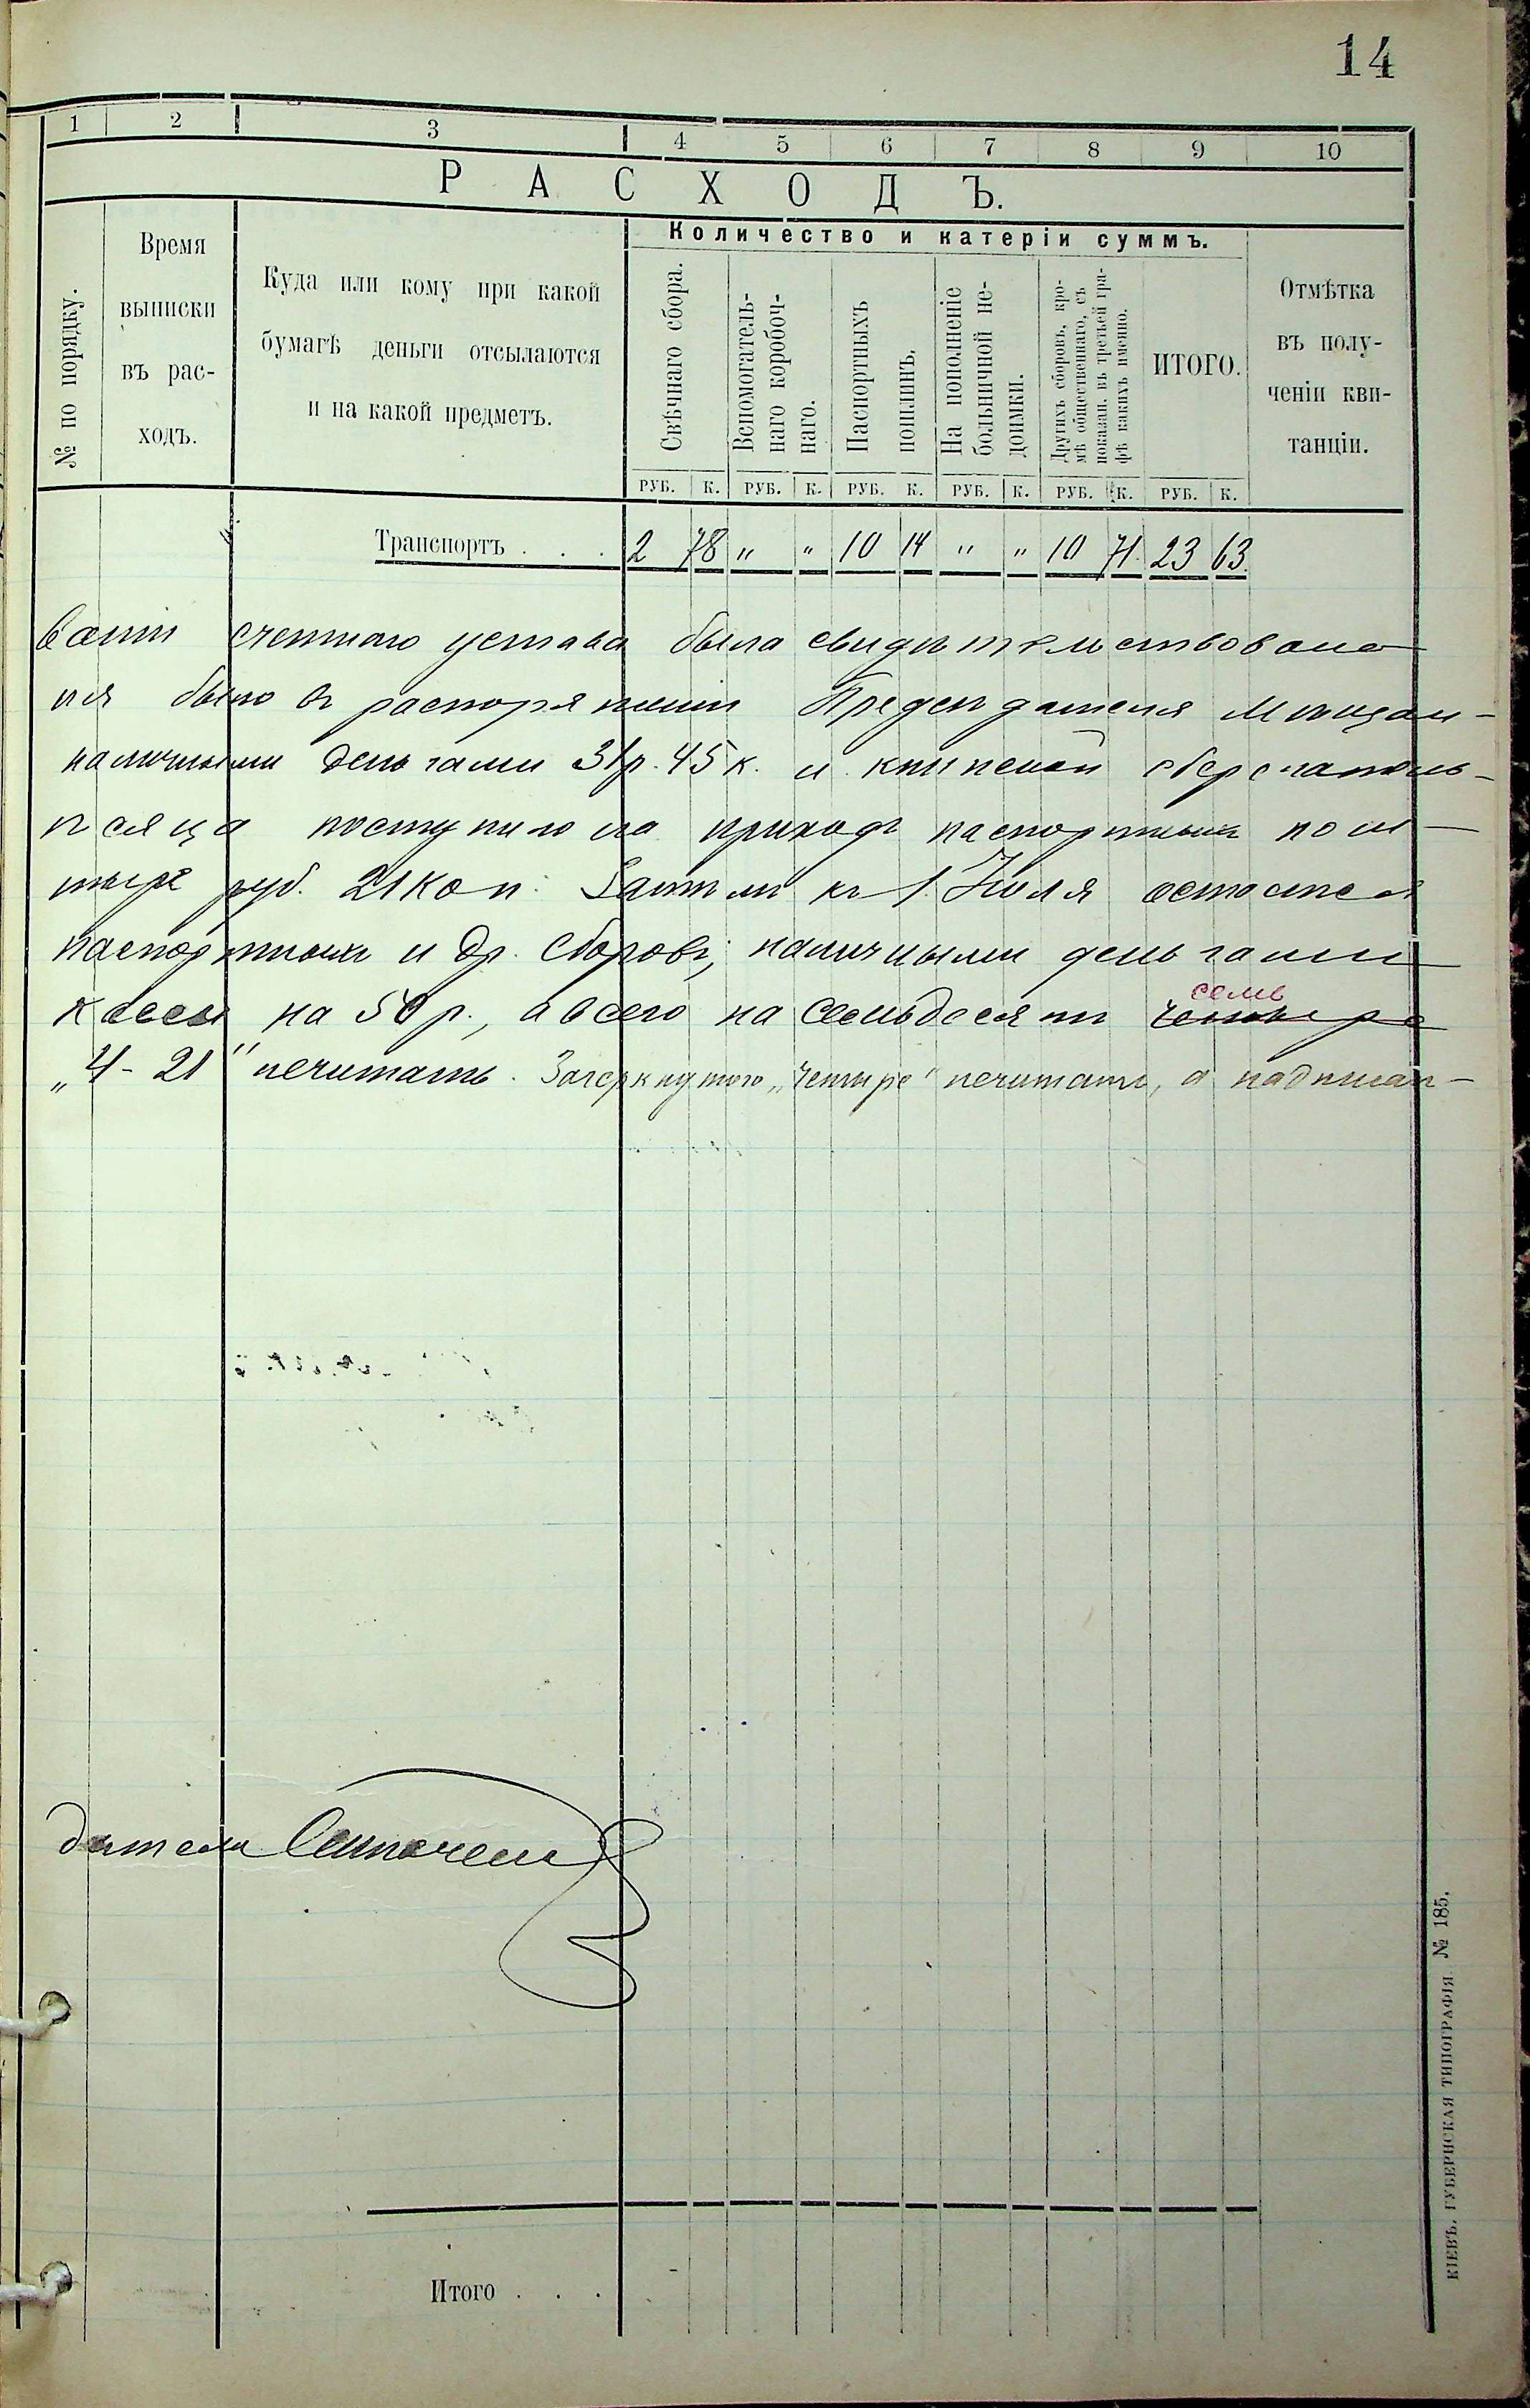 14
1 2 3 4 5 6 7 8 9 10
РАСХОДЪ.
№ по порядку.
Время
выписки
въ рас-
ходъ.
Куда или кому при какой
бумагѣ деньги отсылаются
и на какой предметъ.
Количество и катеріи суммъ.
Свѣчнаго сбора.
Вспомогатель-
наго коробоч-
наго.
Паспортныхъ
пошлинъ.
На пополненіе
больничной не-
доимки.
Другихъ сборовъ, кро-
мѣ общественнаго, съ
показан. въ третьей гра-
фѣ какихъ именно.
ИТОГО.
Отмѣтка
въ полу-
ченіи кви-
танціи.
РУБ. К. РУБ. К. РУБ. К. РУБ. К. РУБ. К. РУБ. К.
Транспортъ . . . 2 78 " " 10 14 " " 10 71 23 63.
счетнаго устава была свидѣтельствована
было въ распоряженіи Предсѣдателя Мѣщан-
наличными деньгами 31 р. 45 к. и книжкой сберегатель-
сяца поступило на приходъ паспортныхъ пош-
тыре руб. 21 коп. Затѣмъ къ 1 Іюля остается
паспортныхъ и др. сборовъ, наличными деньгами
кассы на 50 р., а всего на семьдесятъ четыре
семь
„4-21" нечитать. Зачеркнутого „четыре" нечитать, а надписан-
дателя
Итого . . .
КІЕВЪ. ГУБЕРНСКАЯ ТИПОГРАФІЯ. № 185.